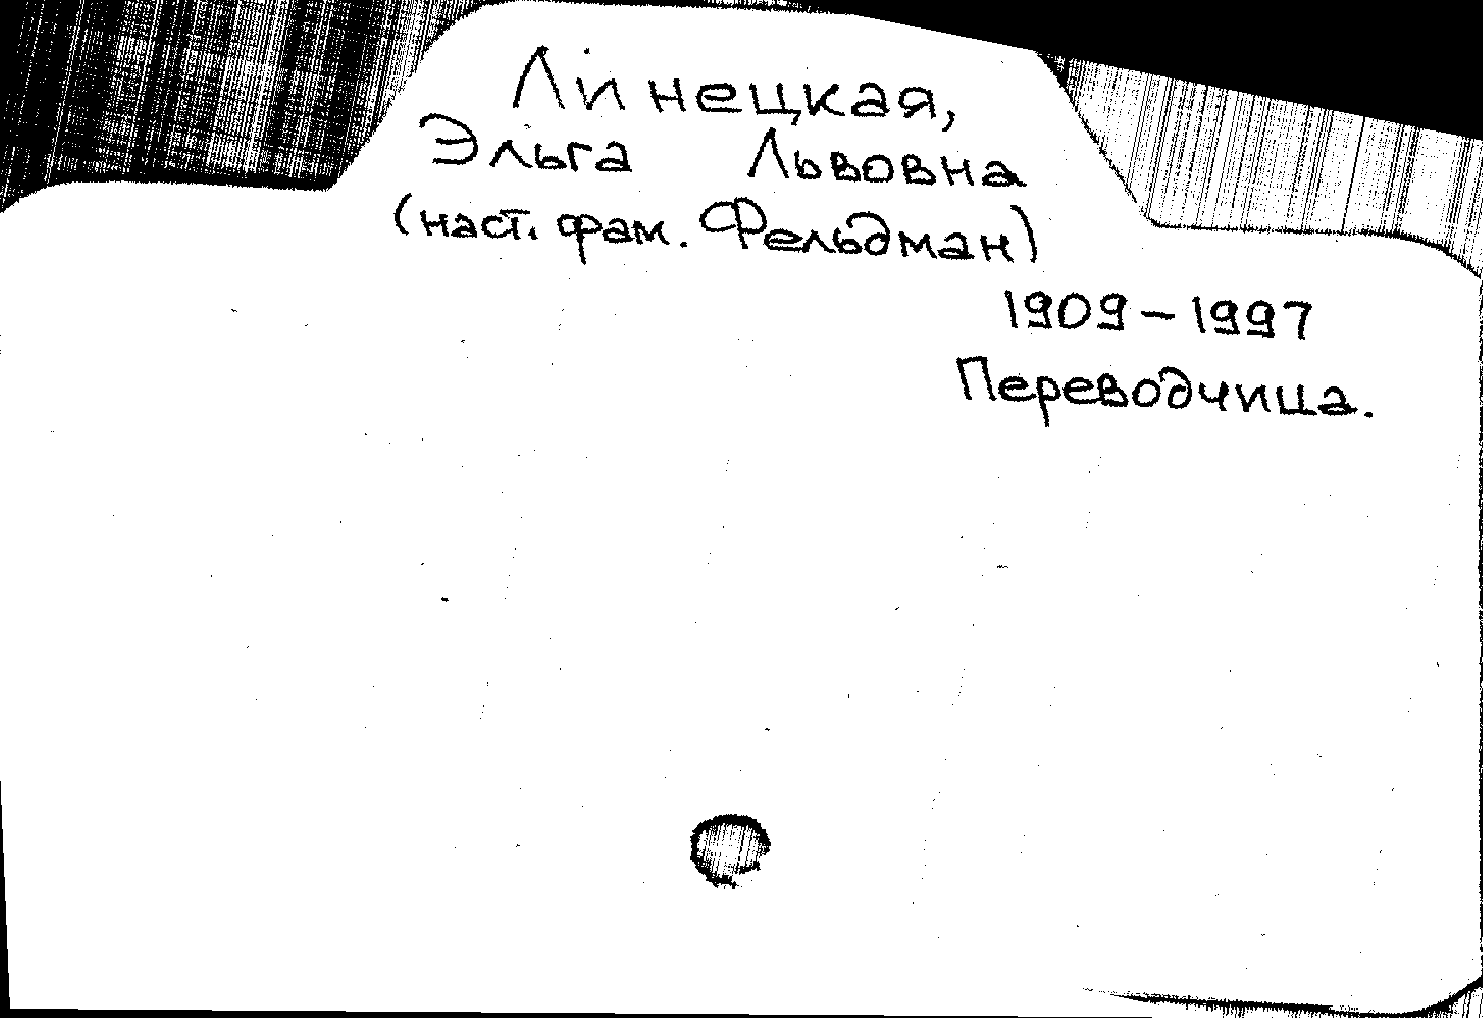 Линецкая,
Эльга Львовна
(наст. фам. Фельдман)
1909–1997
Переводчица.